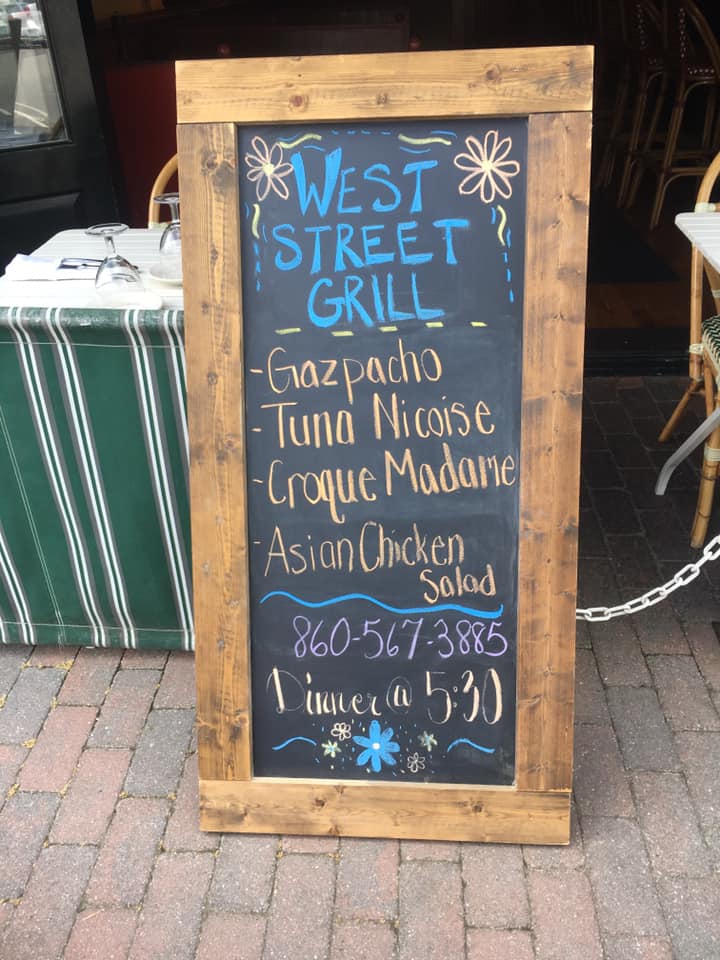 WEST
STREET
GRILL
-Gazpacho
-Tuna Nicoise
-Croque Madame
-Asian Chicken
Salad
860-567-3885
Dinner @ 5:30